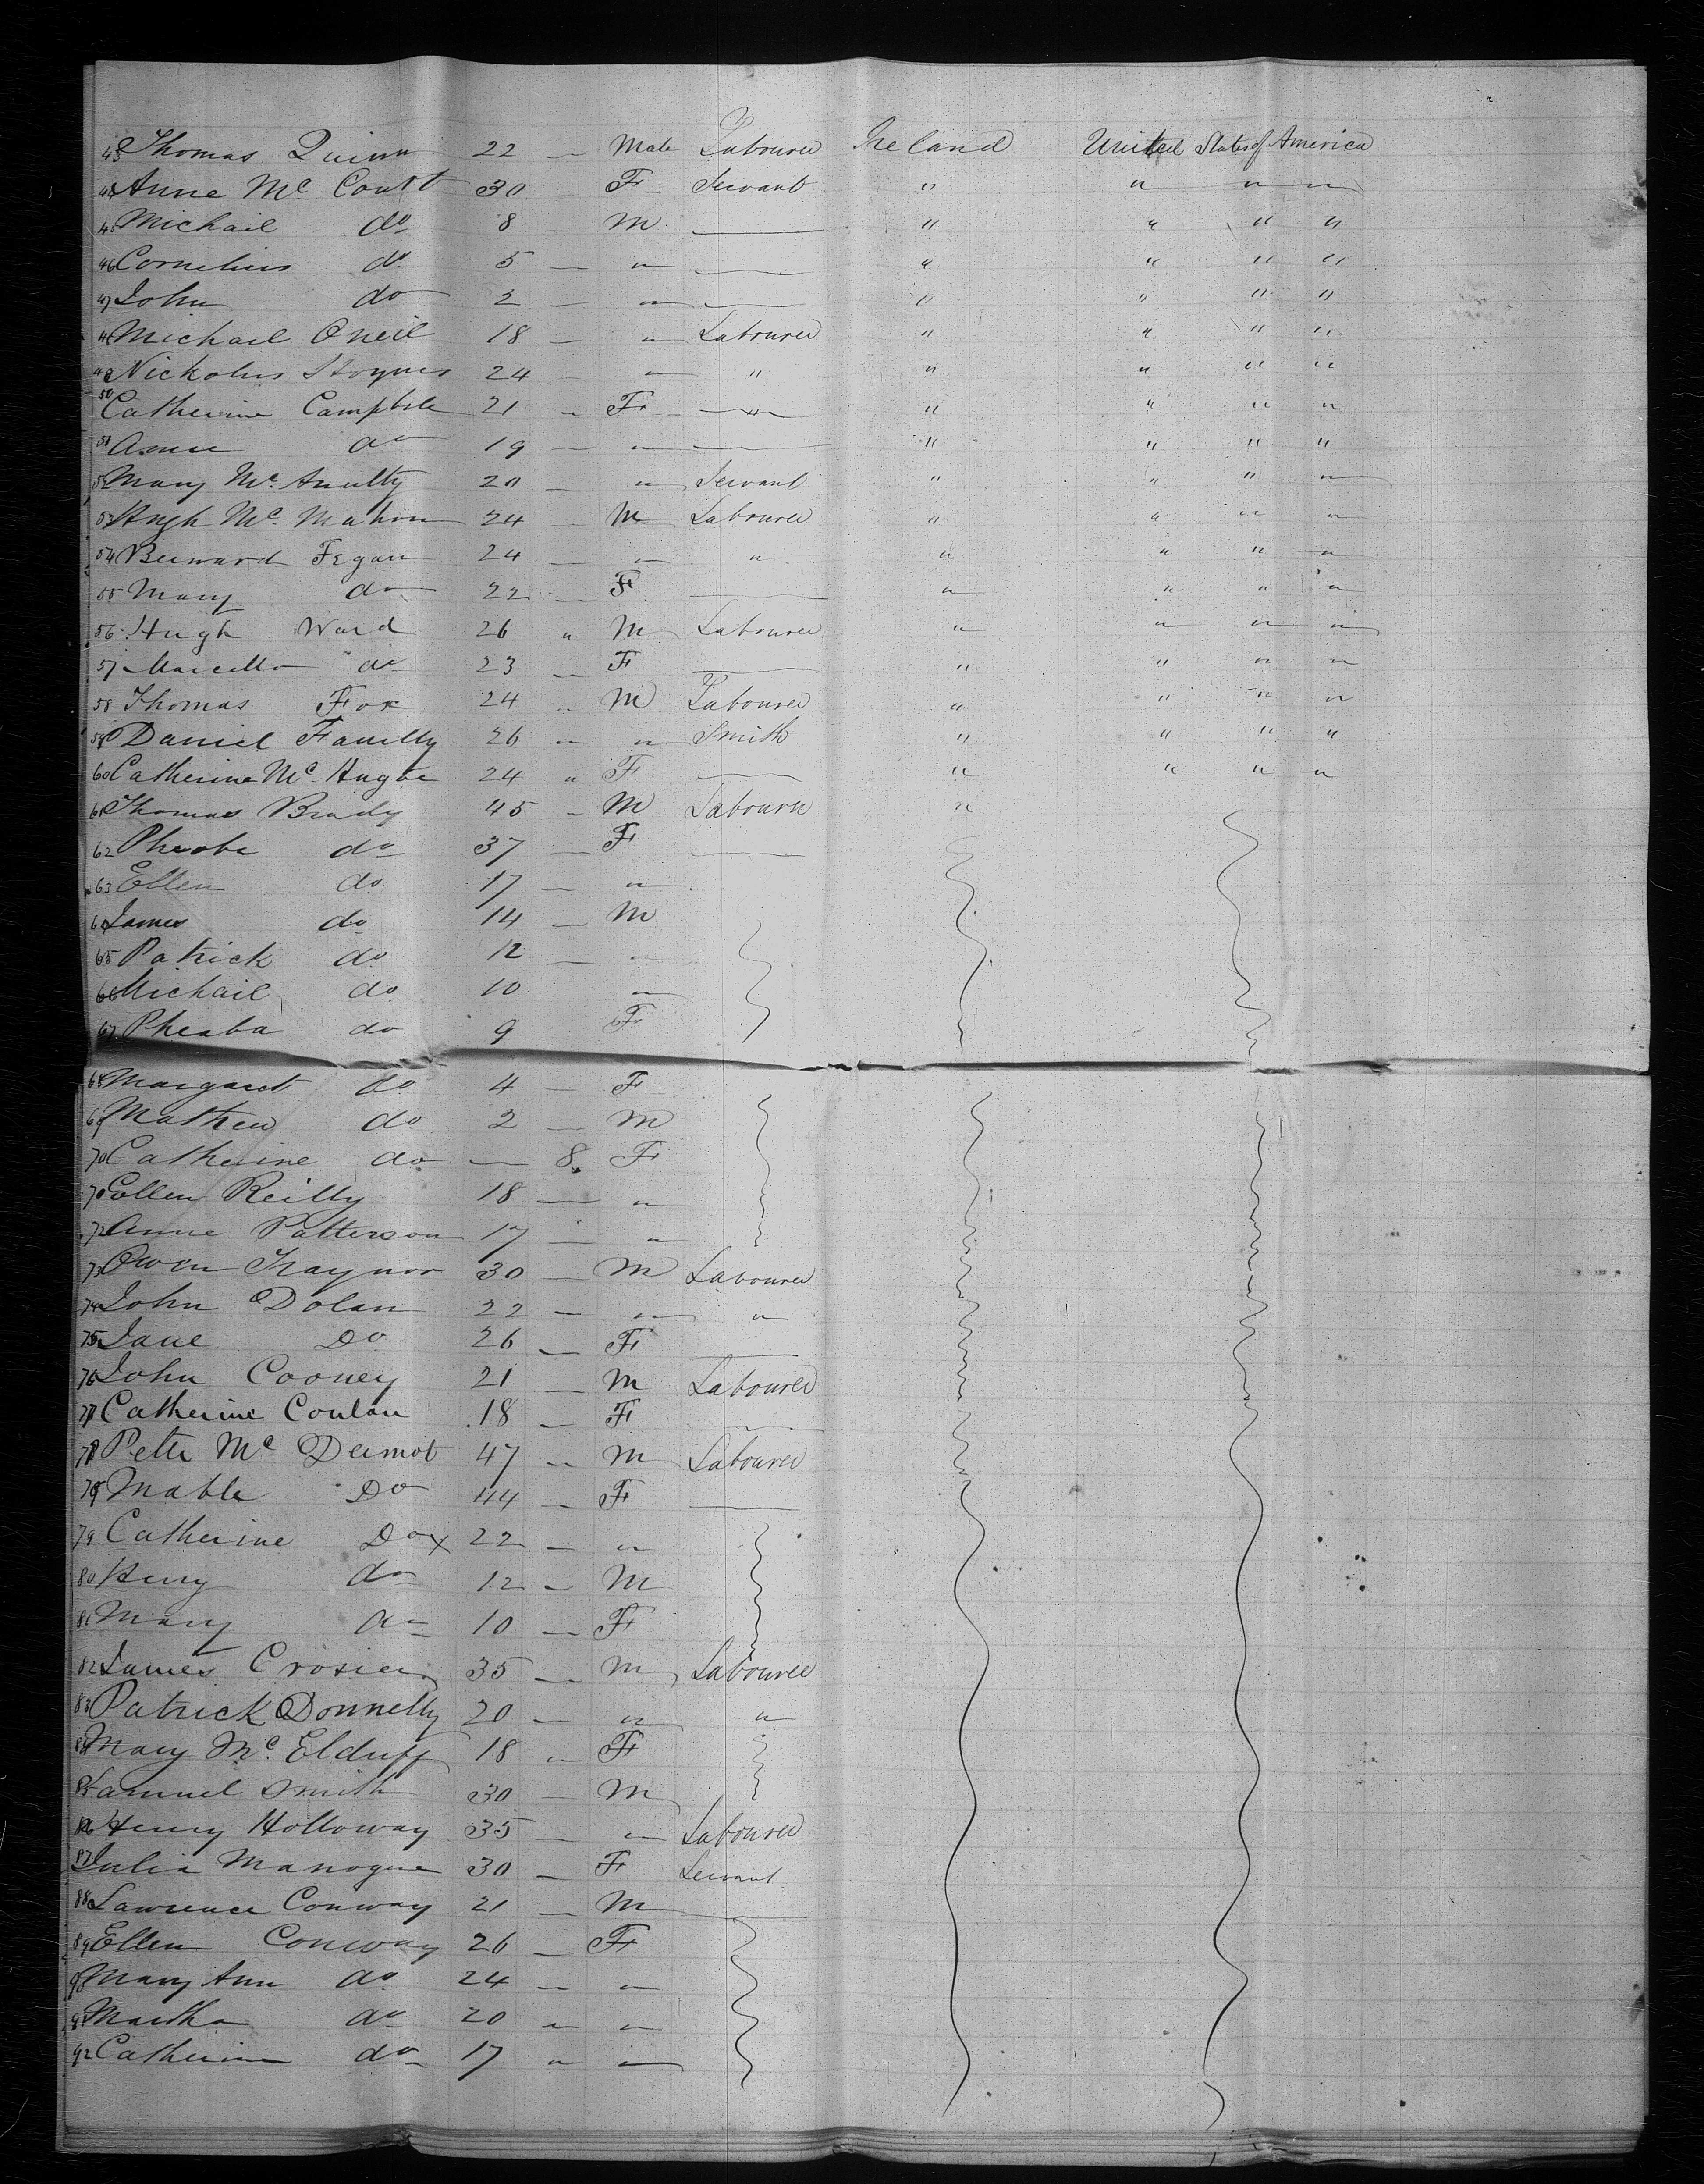 43 Thomas Quinn 22 — Male Labourer Ireland United States of America
44 Anne Mc Court 30 F Servant " " " "
45 Michail do 8 — M — " " " "
46 Cornelius do 5 — " — " " " "
47 John do 2 — " — " " " "
48 Michail Oneil 18 — " Labourer " " " "
49 Nickolus 24 — " " " " " "
50 Catherine Campbele 21 " F — " — " " " "
51 do 19 — " — " " " "
52 Mary Mc Anulty 20 — " Servant " " " "
53 Hugh Mc Mahon 24 — M Labourer " " " "
54 Bernard Fegan 24 — " " " " " "
55 Mary do 22 — F — " " " "
56 Hugh Ward 26 " M Labourer " " " "
57 Marcella do 23 — F — " " " "
58 Thomas Fox 24 " M Labourer " " " "
59 Daniel 26 " " Smith " " " "
60 Catherine Mc 24 " F — " " " "
61 Thomas Brady 45 " M Labourer "
62 Pheobe do 37 — F —
63 Ellen do 17 — "
64 James do 14 — M
65 Patrick do 12 — "
66 Michail do 10 "
67 Pheaba do 9 F
68 Margaret do 4 — F
69 Mathew do 2 — M
70 Catherine do — 8 F
70 Eollen Reilly 18 — "
72 Anne Patterson 17 — "
73 Owen Traynor 30 — M Labourer
74 John Dolan 22 — " "
75 Jane Do 26 — F —
76 John Cooney 21 — M Labourer
77 Catherine Conlan 18 — F —
78 Peter Mc Dermot 47 " M Labourer
78 Mable Do 44 — F —
79 Catherine Do x 22 — "
80 Henry do 12 — M
81 Mary do 10 — F
82 James Crosier 35 — M Labourer
83 Patrick Donnelly 20 — " "
84 Mary Mc Elduff 18 " F
85 Samuel Smith 30 — M
86 Henry Holloway 35 — " Labourer
87 Julia Manogue 30 — F Servant
88 Lawrence Conway 21 — M —
89 Ellen Conway 26 — F
90 Mary Ann do 24 — "
91 Martha do 20 " "
92 Catherine do 17 " "